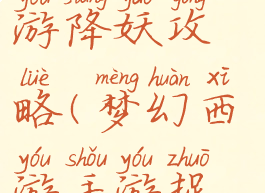 yóu xiáng yāo gōng
游降妖攻
lüè mèng huàn xī
略(梦幻西
yóu shǒu yóu zhuō
游手游捉